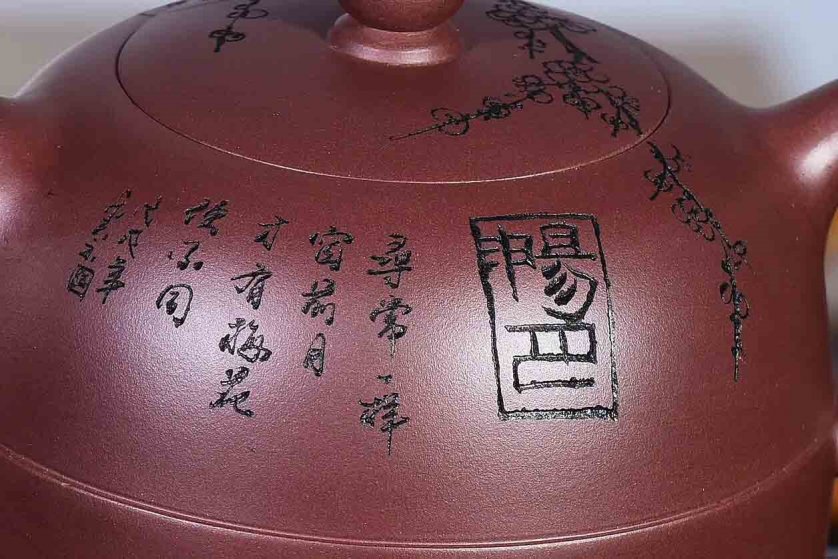 暢
尋常一樣
窗前月
才有梅花
便不同